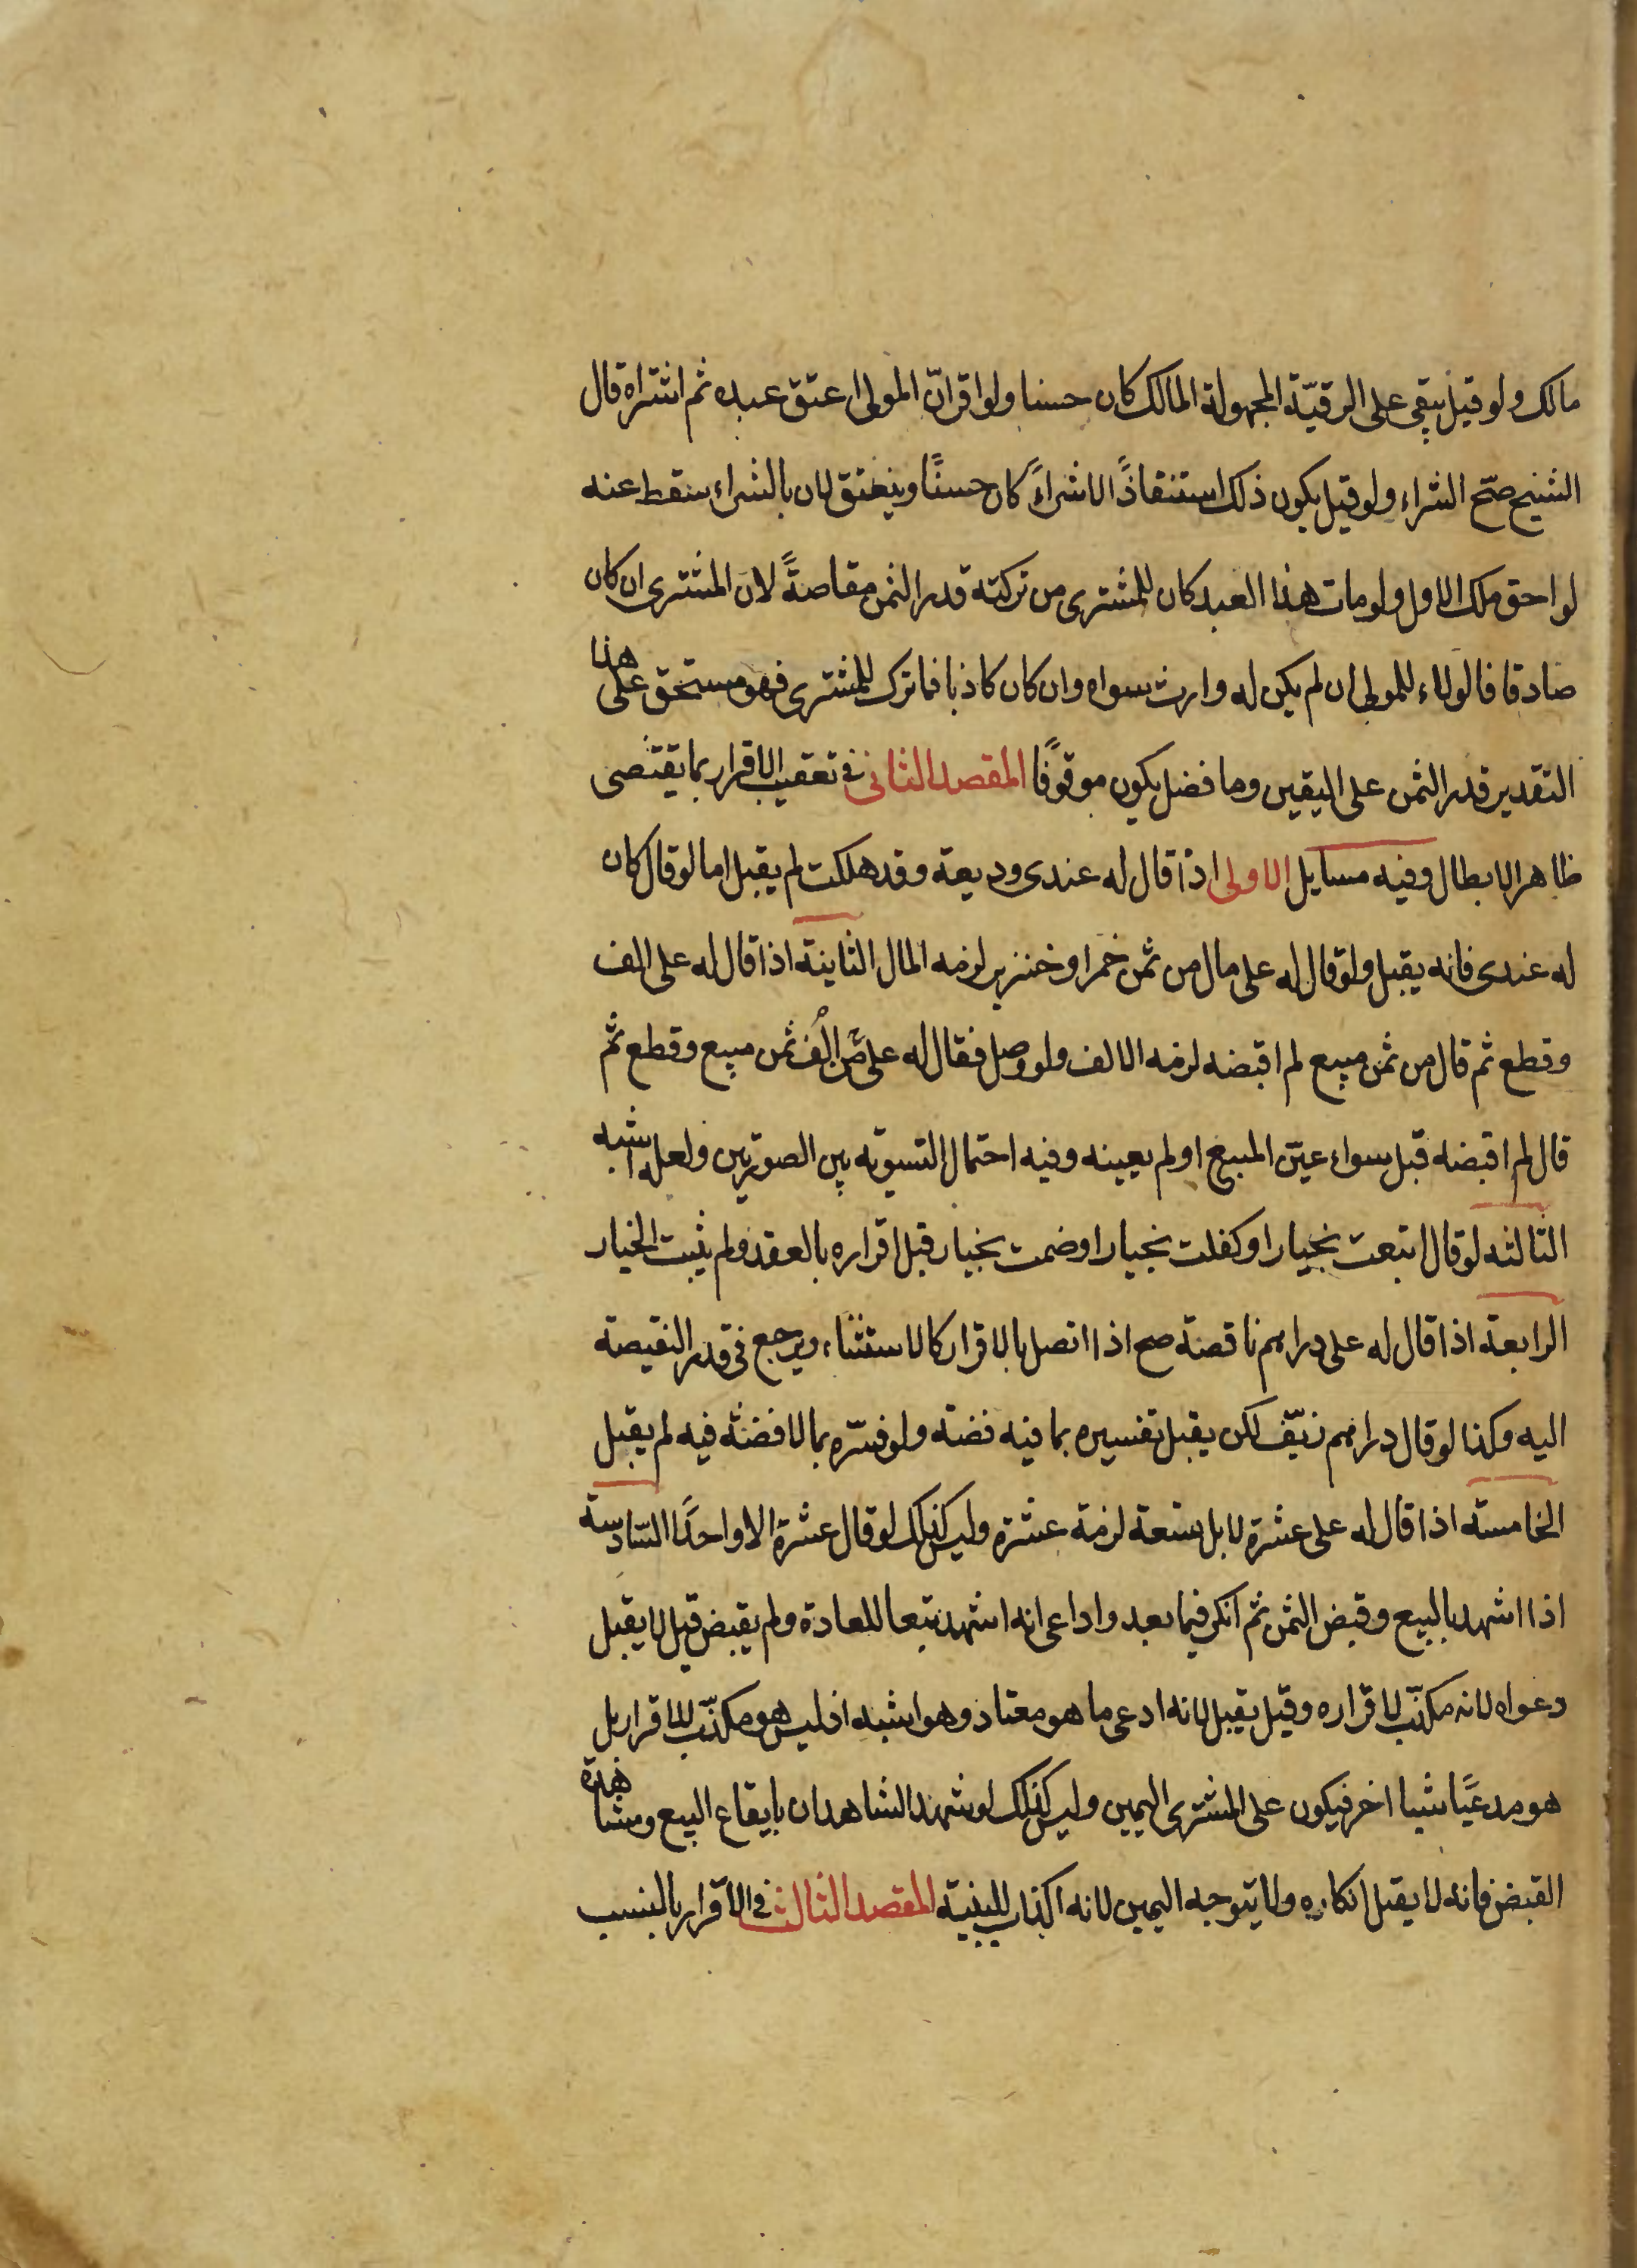 مالك ولو قيل يبقى على الرقيّة المجهولة المالك كان حسنا ولو اقر انّ المولى اعتق عبده ثم اشتراه قال
الشيخ صحّ الشراء ولو قيل يكون ذلك استنقاذًا لا شراءً كان حسنًا وينعتق لان بالشراء سقط عنه
لواحق ملك الاول ولو مات هذا العبد كان للمشترى من تركته قدر الثمن مقاصةً لان المشترى ان كان
صادقا فالولاء للمولى ان لم يكن له وارث سواه وان كان كاذبا فما ترك للمشترى فهو مستحق على هذا
التقدير قدر الثمن على اليقين وما فضل يكون موقوفًا المقصد الثانى فى تعقيب الاقرار بما يقتضى
ظاهر الابطال وفيه مسايل الاولى اذا قال له عندى وديعة وقد هلكت لم يقبل اما لو قال كان
له عندى فانه يقبل ولو قال له على مال من ثمن خمر او خنزير لزمه المال الثانية اذا قال له على الف
وقطع ثم قال من ثمن مبيع لم اقبضه لزمه الالف ولو وصل فقال له علىّ من الف ثمن مبيع وقطع ثم
قال لم اقبضه قبل سواء عيّن المبيع او لم يعينه وفيه احتمال التسوية بين الصورتين ولعله اشبه
الثالثه لو قال ابتعت بخيار او كفلت بخيار او ضمت بخيار قبل اقراره بالعقد ولم يثبت الخيار
الرابعة اذا قال له على دراهم ناقصة صح اذا اتصل بالاقرار كالاستثناء ويرجع فى قدر النقيصة
اليه وكذا لو قال دراهم زيّف لكن يقبل تفسيره بما فيه فضة ولو فسّره بما لا فضّة فيه لم يقبل
الخامسة اذا قال له على عشرة لا بل تسعة لزمة عشرة وليس كذلك لو قال عشرة الا واحدًا السّادسة
اذا اشهد بالبيع وقبض الثمن ثم انكر فيما بعد واداعى انه اشهد تبعا للعادة ولم يقبض قيل لا يقبل
دعواه لانه مكذّب لاقراره وقيل يقبل لانه ادعى ما هو معتاد وهو اشبه اذ ليس هو مكذّب للاقرار بل
هو مدعيًا شيا اخر فيكون على المشترى اليمين وليس كذلك لو شهد الشاهدان بايقاع البيع ومشاهدة
القبض فانه لا يقبل انكاره ولا يتوجه اليمين لانه اكذاب للبينة المقصد الثالث فى الاقرار بالنسب